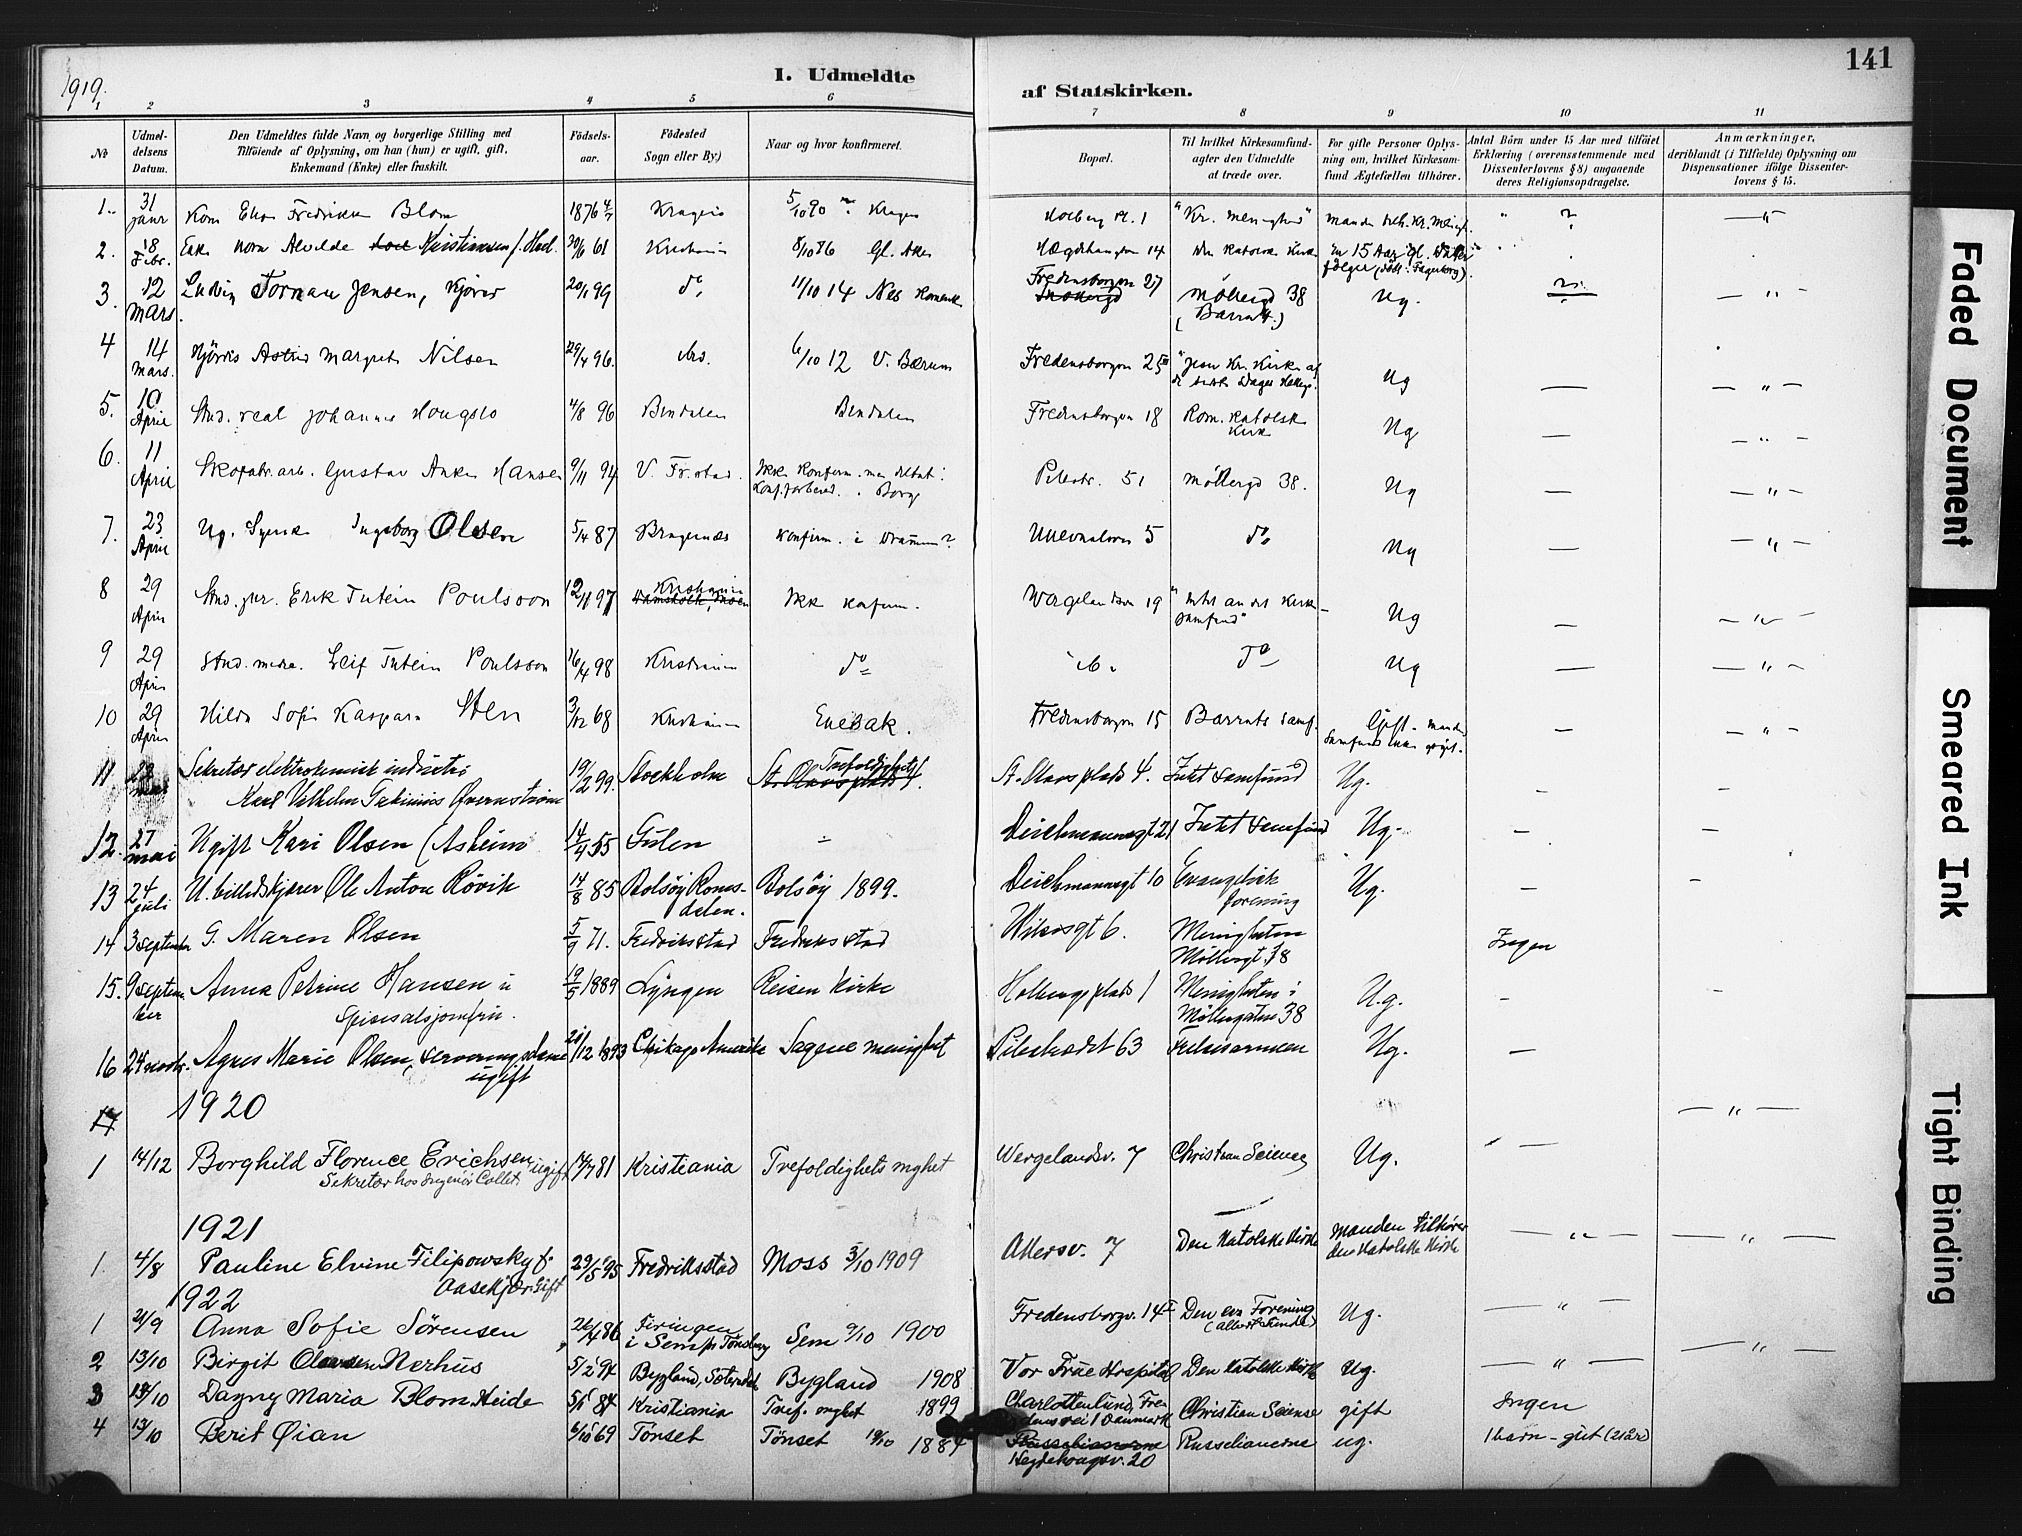 1919.
I. Udmeldte
af Statskirken.
141
1 2 3 4 5 6 7 8 9 10 11
No
Udmeldelsens Datum.
Den Udmeldtes fulde Navn og borgerlige Stilling med Tilføiende af Oplysning, om han (hun) er ugift, gift, Enkemand (Enke) eller fraskilt.
Födselsaar.
Födested Sogn eller By)
Naar og hvor konfirmeret.
Bopæl.
Til hvilket Kirkesamfund agter den Udmeldte at træde over.
For gifte Personer Oplysning om, hvilket Kirkesamfund Ægtefællen tilhörer.
Antal Börn under 15 Aar med tilföiet Erklæring (overensstemmende med Dissenterlovens § 8) angaaende deres Religionsopdragelse.
Anmærkninger, deriblandt (i Tilfælde) Oplysning om Dispensationer ifölge Dissenterlovens § 15.
1. 31 Janr Kone Fredrikke Blom 1876 Kragerø 5/10 90 Kragerø Holberg Pl. 1 "Kr. menighed"
2. 18 Febr. Enke Alvilde Kristiansen f. 61 Kristiania 8/10 86 Gl. Aker 14 Den Katolske Kirke
3. 12 Mars. Ludvig Tornau Jensen, Kjører 20/1 99 do 11/10 14 Nes Fredensborgvn 27 Møllergd 38 (Barratt.) Ug.
4 14 Mars. Hjørdis Astrid Margrete Nilsen 29/4 96. 6/10 12 V. Bærum Fredensborgvn 25 "Jesu Kr. Kirke af de sidste Dages Hellige. Ug
5. 10 April Stud. real Johannes Hougslo 4/8 96 Bindalen Bindalen Fredensborgvn 18 Rom. Katolsk Kirke Ug
6. 11 April Skofabr.arb. Gustav Anker Hansen 9/11 94 V. Fr.stad. Ikke konfirm. men deltat i Konf.forbered. i Borge Pilestr. 51 Møllergd 38. Ug
7. 23 April Ug. Syerske Ingeborg Olsen 5/4 87 Bragernæs Konfirm. i Drammen? Ullevålsvn 5 do Ug
8 29 April Stud. jur. Erik Tutein Poulsson 12/11 97 Kristiania Ikke konfirm. Wergelandsvn 19 "intet andet Kirkesamfund" Ug
9 29 April Stud. med. Leif Tutein Poulsson 16/4 98 Kristiania do do Ug
10 29 April Hilda Sofie Kaspara Sten 3/12 68 Kristiania Enebak. Fredensborgvn 15 Barratts samf. Gift.
11 28 Sekretær elektrokemisk industri Karl Vilhelm Qvarnström 19/2 99. Stockholm Trefoldighets St. Olavs plads 4. Intet Samfund Ug.
12. 27 mai Ugift Kari Olsen (Asheim 14/4 55 Gulen – Deichmannsgt 21 Intet Samfund Ug.
13 24 juli U. billedskjærer Ole Anton Røvik 14/8 85 Bolsøy Romsdalen. Bolsøy 1899. Deichmannsgt 10 Evangelisk forening Ug.
14 3 september G. Maren Olsen 5/9 71. Fredriksstad Fredriksstad Wilsesgt 6. Menigheten Møllergt. 38 Ingen
15. 9 september Anna Petrine Hansen u Spisesalsjomfru. 19/5 1889 Lyngen Reisen Kirke Holbergs plads 1 Menigheten i Møllergaten 38 U.g.
16 24 novbr. Agnes Marie Olsen, serveringsdame ugift 21/12 1893 Chikago Amerika Sagene menighet Pilestrædet 63 Frelsesarmeen Ug.
17
1920
1 14/12 Borghild Florence Erichsen, ugift Sekretær hos Ingeniør Collet 17/7 81 Kristiania Trefoldighets mghet Wergelandsv. 7 Christian Science Ug.
1921
1. 4/8 Pauline Elvine Filipowsky f. Aasekjær. Gift 29/5 95 Fredriksstad Moss 3/10 1909 Akersv. 7 Den Katolske Kirke Manden tilhører den Katolske Kirke
1922
1 21/9 Anna Sofie Sörensen 26/4 86 i Sem pr Tönsberg Sem 9/10 1900 Fredensborgv. 14 Den ev. Forening Ug.
2 13/10 Birgit Nerhus 5/2 94 Bygland, Sætersdal Bygland 1908 Vor Frue Hospital Den Katolske Kirke Ug.
3 13/10 Dagny Maria Blom Heide 5/1 84 Kristiania Tref. mghet 1899 Charlottenlund, Danmark Christian Sciense gift Ingen
4 13/10 Berit Øian 6/10 69 Tönset Tönset 19/10 1884 Russelianerne Hegdehaugsv. 20 Russelianerne ug. 1 barn – gut (21 år)
Faded Document
Smeared Ink
Tight Binding